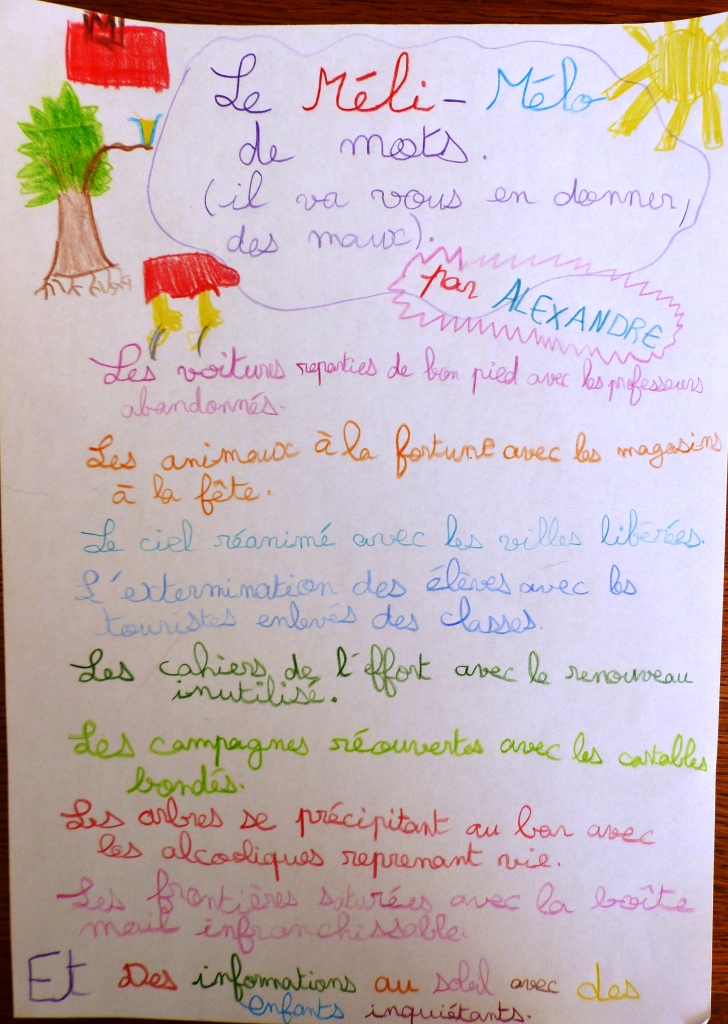 Le Méli-Mélo
de mots.
(il va vous en donner,
des maux).
par ALEXANDRE
Les voitures reparties de bon pied avec les professeurs
abandonnés.
Les animaux à la fortune avec les magasins
à la fête.
Le ciel réanimé avec les villes libérées.
L'extermination des élèves avec les
touristes enlevés des classes.
Les cahiers de l'effort avec le renouveau
inutilisé.
Les campagnes réouvertes avec les cartables
bondés.
Les arbres se précipitant au bar avec
les alcooliques reprenant vie.
Les frontières saturées avec la boîte
mail infranchissable.
Et Des informations au soleil avec des
enfants inquiétants.